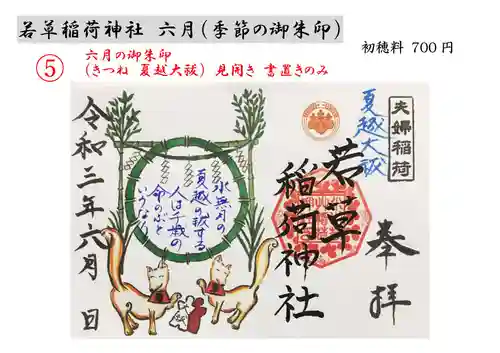 若草稲荷神社 六月(季節の御朱印)
初穂料 700円
⑤
六月の御朱印
(きつね 夏越大祓) 見開き 書置きのみ
夫婦稲荷
夏越大祓
奉拝
若草
稲荷神社
水無月の
夏越の祓する
人は千歳の
命のぶと
いうなり
令和三年六月 日